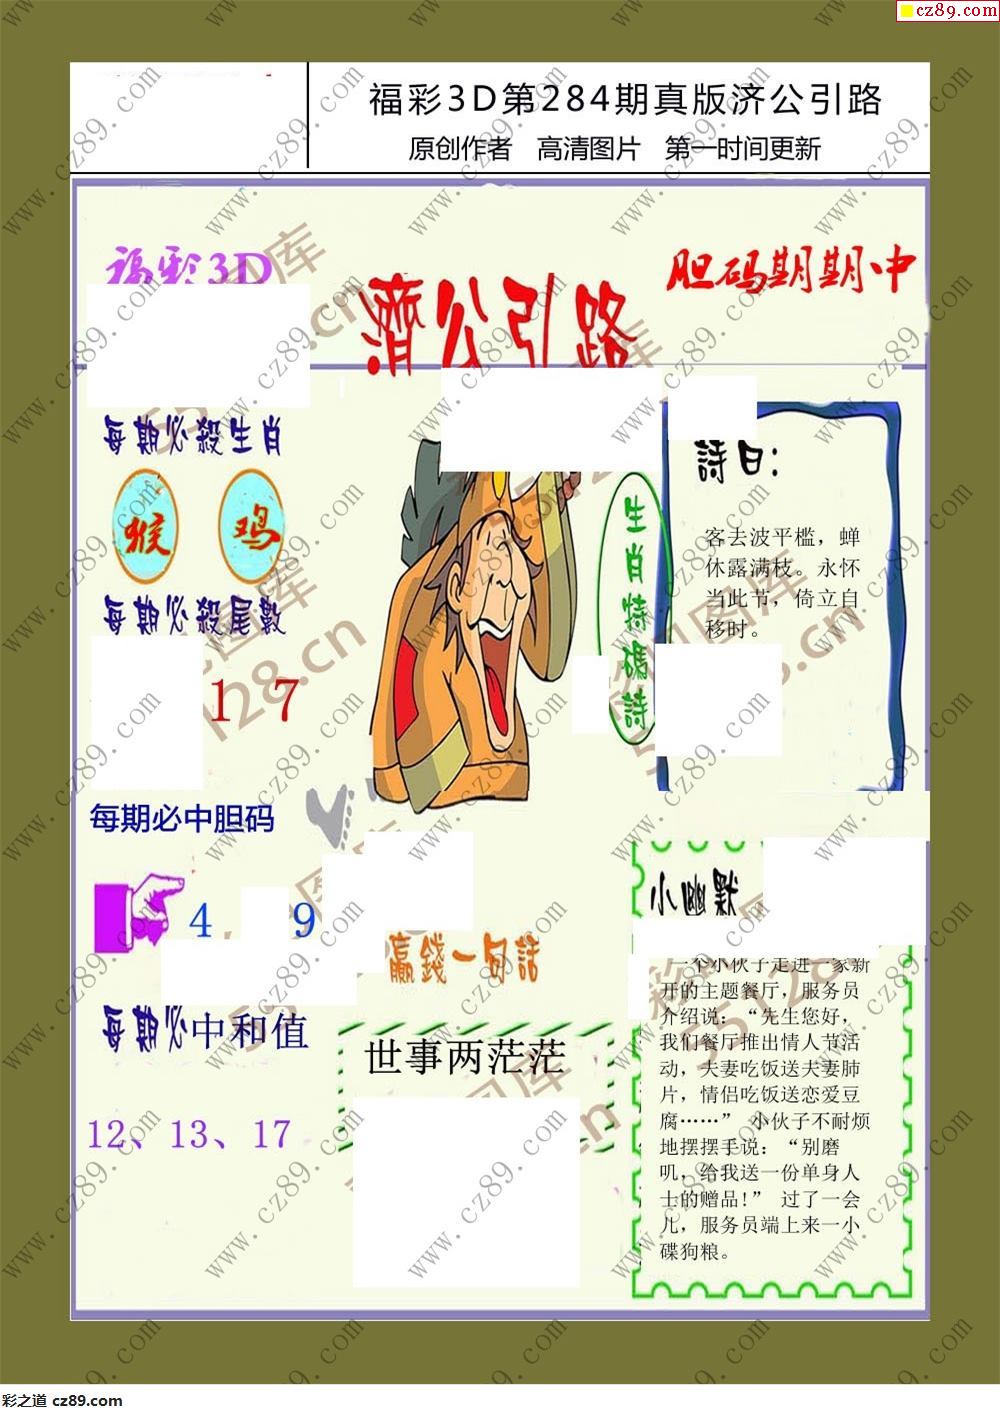 cz89.com
福彩3D第284期真版济公引路
原创作者 高清图片 第一时间更新
福彩3D
濟公引路
胆码期期中
每期必殺生肖
猴 鸡
每期必殺尾數
1 7
每期必中胆码
4 9
每期必中和值
12、13、17
生肖特碼詩
詩曰：
客去波平槛，蝉
休露满枝。永怀
当此节，倚立自
移时。
赢錢一句話
世事两茫茫
小幽默
一个小伙子走进一家新
开的主题餐厅，服务员
介绍说：“先生您好，
我们餐厅推出情人节活
动，夫妻吃饭送夫妻肺
片，情侣吃饭送恋爱豆
腐……” 小伙子不耐烦
地摆摆手说：“别磨
叽，给我送一份单身人
士的赠品！” 过了一会
儿，服务员端上来一小
碟狗粮。
彩之道 cz89.com